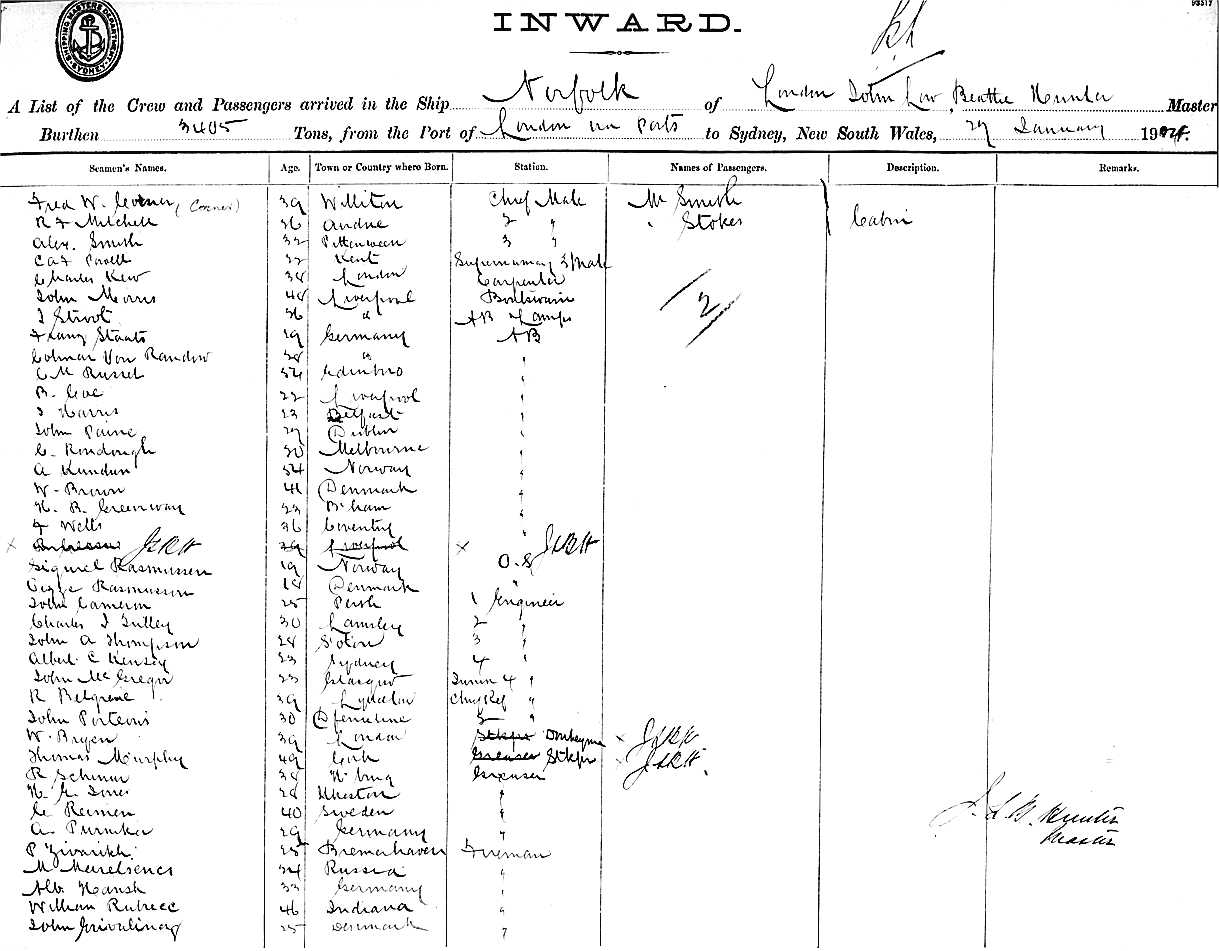 93317
SHIPPING MASTERS DEPARTMENT SYDNEY
INWARD.
A List of the Crew and Passengers arrived in the Ship Norfolk of London John Law Beattie Hunter Master
Burthen 3405 Tons, from the Port of London via Ports to Sydney, New South Wales, 27 January 190
Seamen's Names. Age. Town or Country where Born. Station. Names of Passengers. Description. Remarks.
Fred W. (Corner) 39 Williton Chief Mate Mr Smith
R F Mitchell 36 2 " " Stokes Cabin
Alex. Smith 32 Pittenweem 3 "
Powell 32 Kent Supernumary 3/Mate
Charles Kew 38 London Carpenter
John Morris 48 Liverpool Boatswain 2
J Stroot 36 " AB Lamps
Franz Staats 19 Germany AB
Colmar Von Randow 38 " "
C M Russel 54 Edinbro "
B. Coe 22 Liverpool "
J Harris 23 Belfast "
John Paine 27 Dublin "
C. 30 Melbourne "
A 54 Norway "
W. Brown 41 Denmark "
H. B. Greenway 23 B'ham "
F Wells 36 Coventry "
x JLBH 39 Liverpool x JLBH
Sigurd Rasmussen 19 Norway O.S
Rasmusson 18 Denmark "
John Cameron 25 Perth 1 Engineer
Charles J Tulley 30 Lamsley 2 "
John A Thompson 28 S'oton 3 "
Albert C Kensey 23 Sydney 4 "
John McGregor 23 Glasgow Junior 4 "
R Belgrene 39 Chief Ref "
John Porteous 30 2 "
W. Bryen 39 London Stkpr Donkeyman x JLBH
Thomas Murphy 49 Cork Greaser Stkpr JLBH.
R 38 H'burg Greaser
H. G. Jones 28 "
C. Reimen 40 Sweden "
A. 29 Germany " J. L. B. Hunter
P 25 Bremerhaven Fireman Master
M 34 Russia "
Alb. Hansh 33 Germany "
William 46 Indiana "
John 25 Denmark "